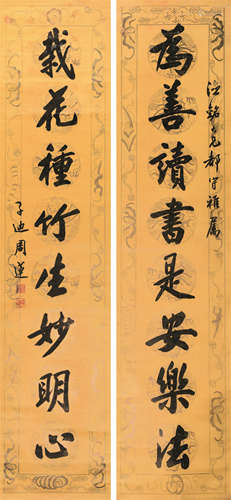 滋銘尤都守雅屬
為善讀書是安樂法
栽花種竹生妙明心
子迪周蓮